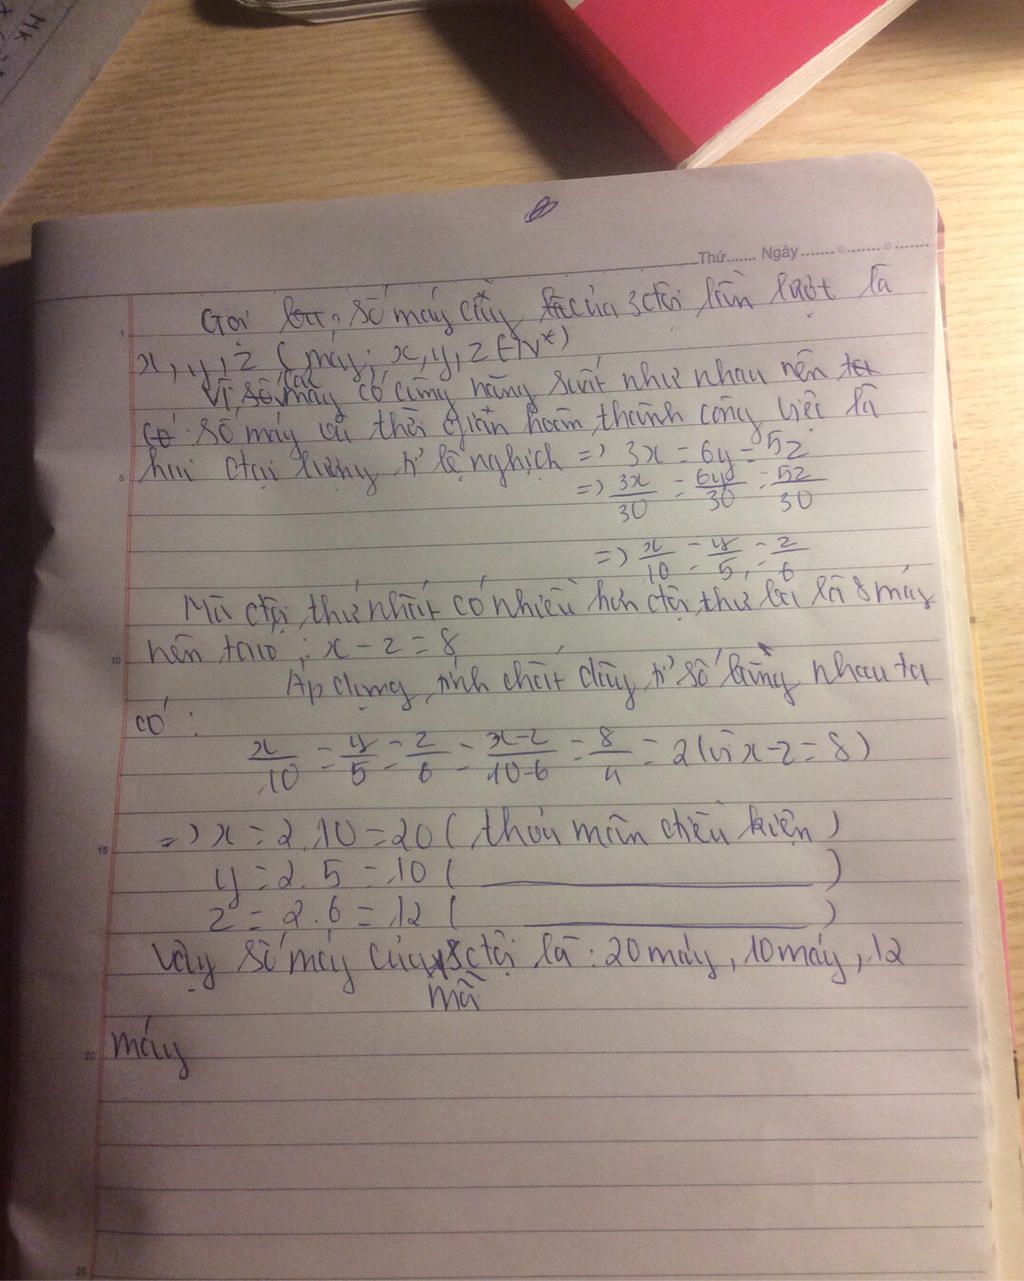 Thứ....... Ngày
Gọi số máy cày của 3 đội lần lượt là
x, y, z (máy; x, y, z ∈ N*)
Vì các máy có cùng năng suất như nhau nên
số máy và thời gian hoàn thành công việc là
hai đại lượng tỉ lệ nghịch => 3x = 6y = 5z
=> 3x/30 = 6y/30 = 5z/30
=> x/10 = y/5 = z/6
Mà đội thứ nhất có nhiều hơn đội thứ ba là 8 máy
nên ta có : x - z = 8
Áp dụng tính chất dãy tỉ số bằng nhau ta
có :
x/10 = y/5 = z/6 = x-z/10-6 = 8/4 = 2 (vì x-z = 8)
=> x = 2.10 = 20 ( thỏa mãn điều kiện )
y = 2.5 = 10 ( ——— )
z = 2.6 = 12 ( ——— )
Vậy số máy của 3 đội là : 20 máy, 10 máy, 12
máy
5
10
15
20
25